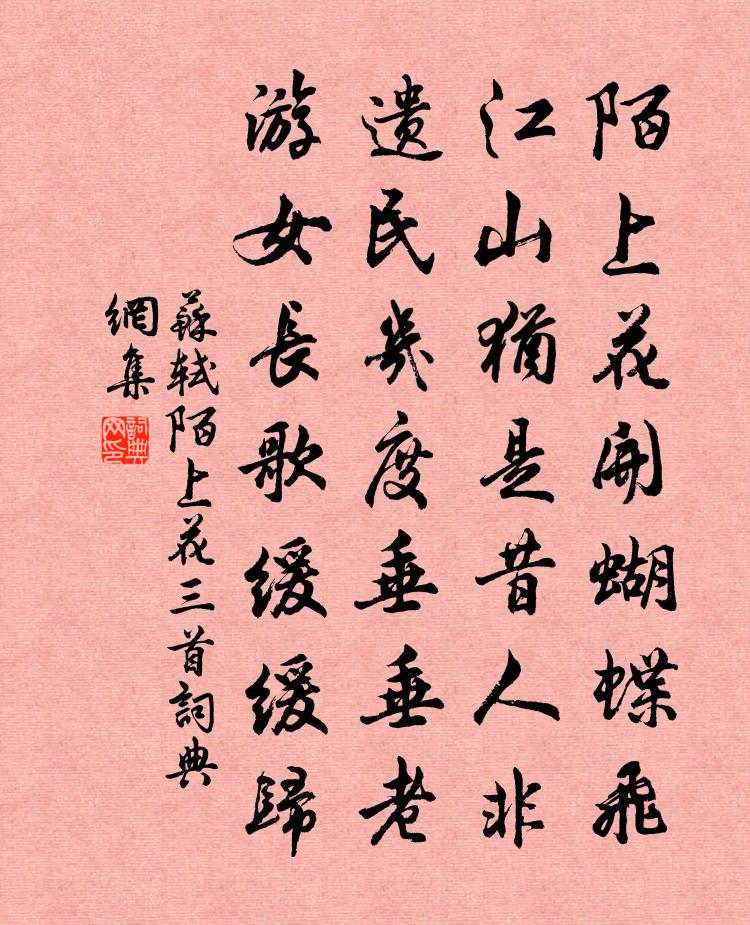 陌上花開蝴蝶飛
江山猶是昔人非
遺民幾度垂垂老
游女長歌緩緩歸
蘇軾陌上花三首詞典
網集
詞典
网印